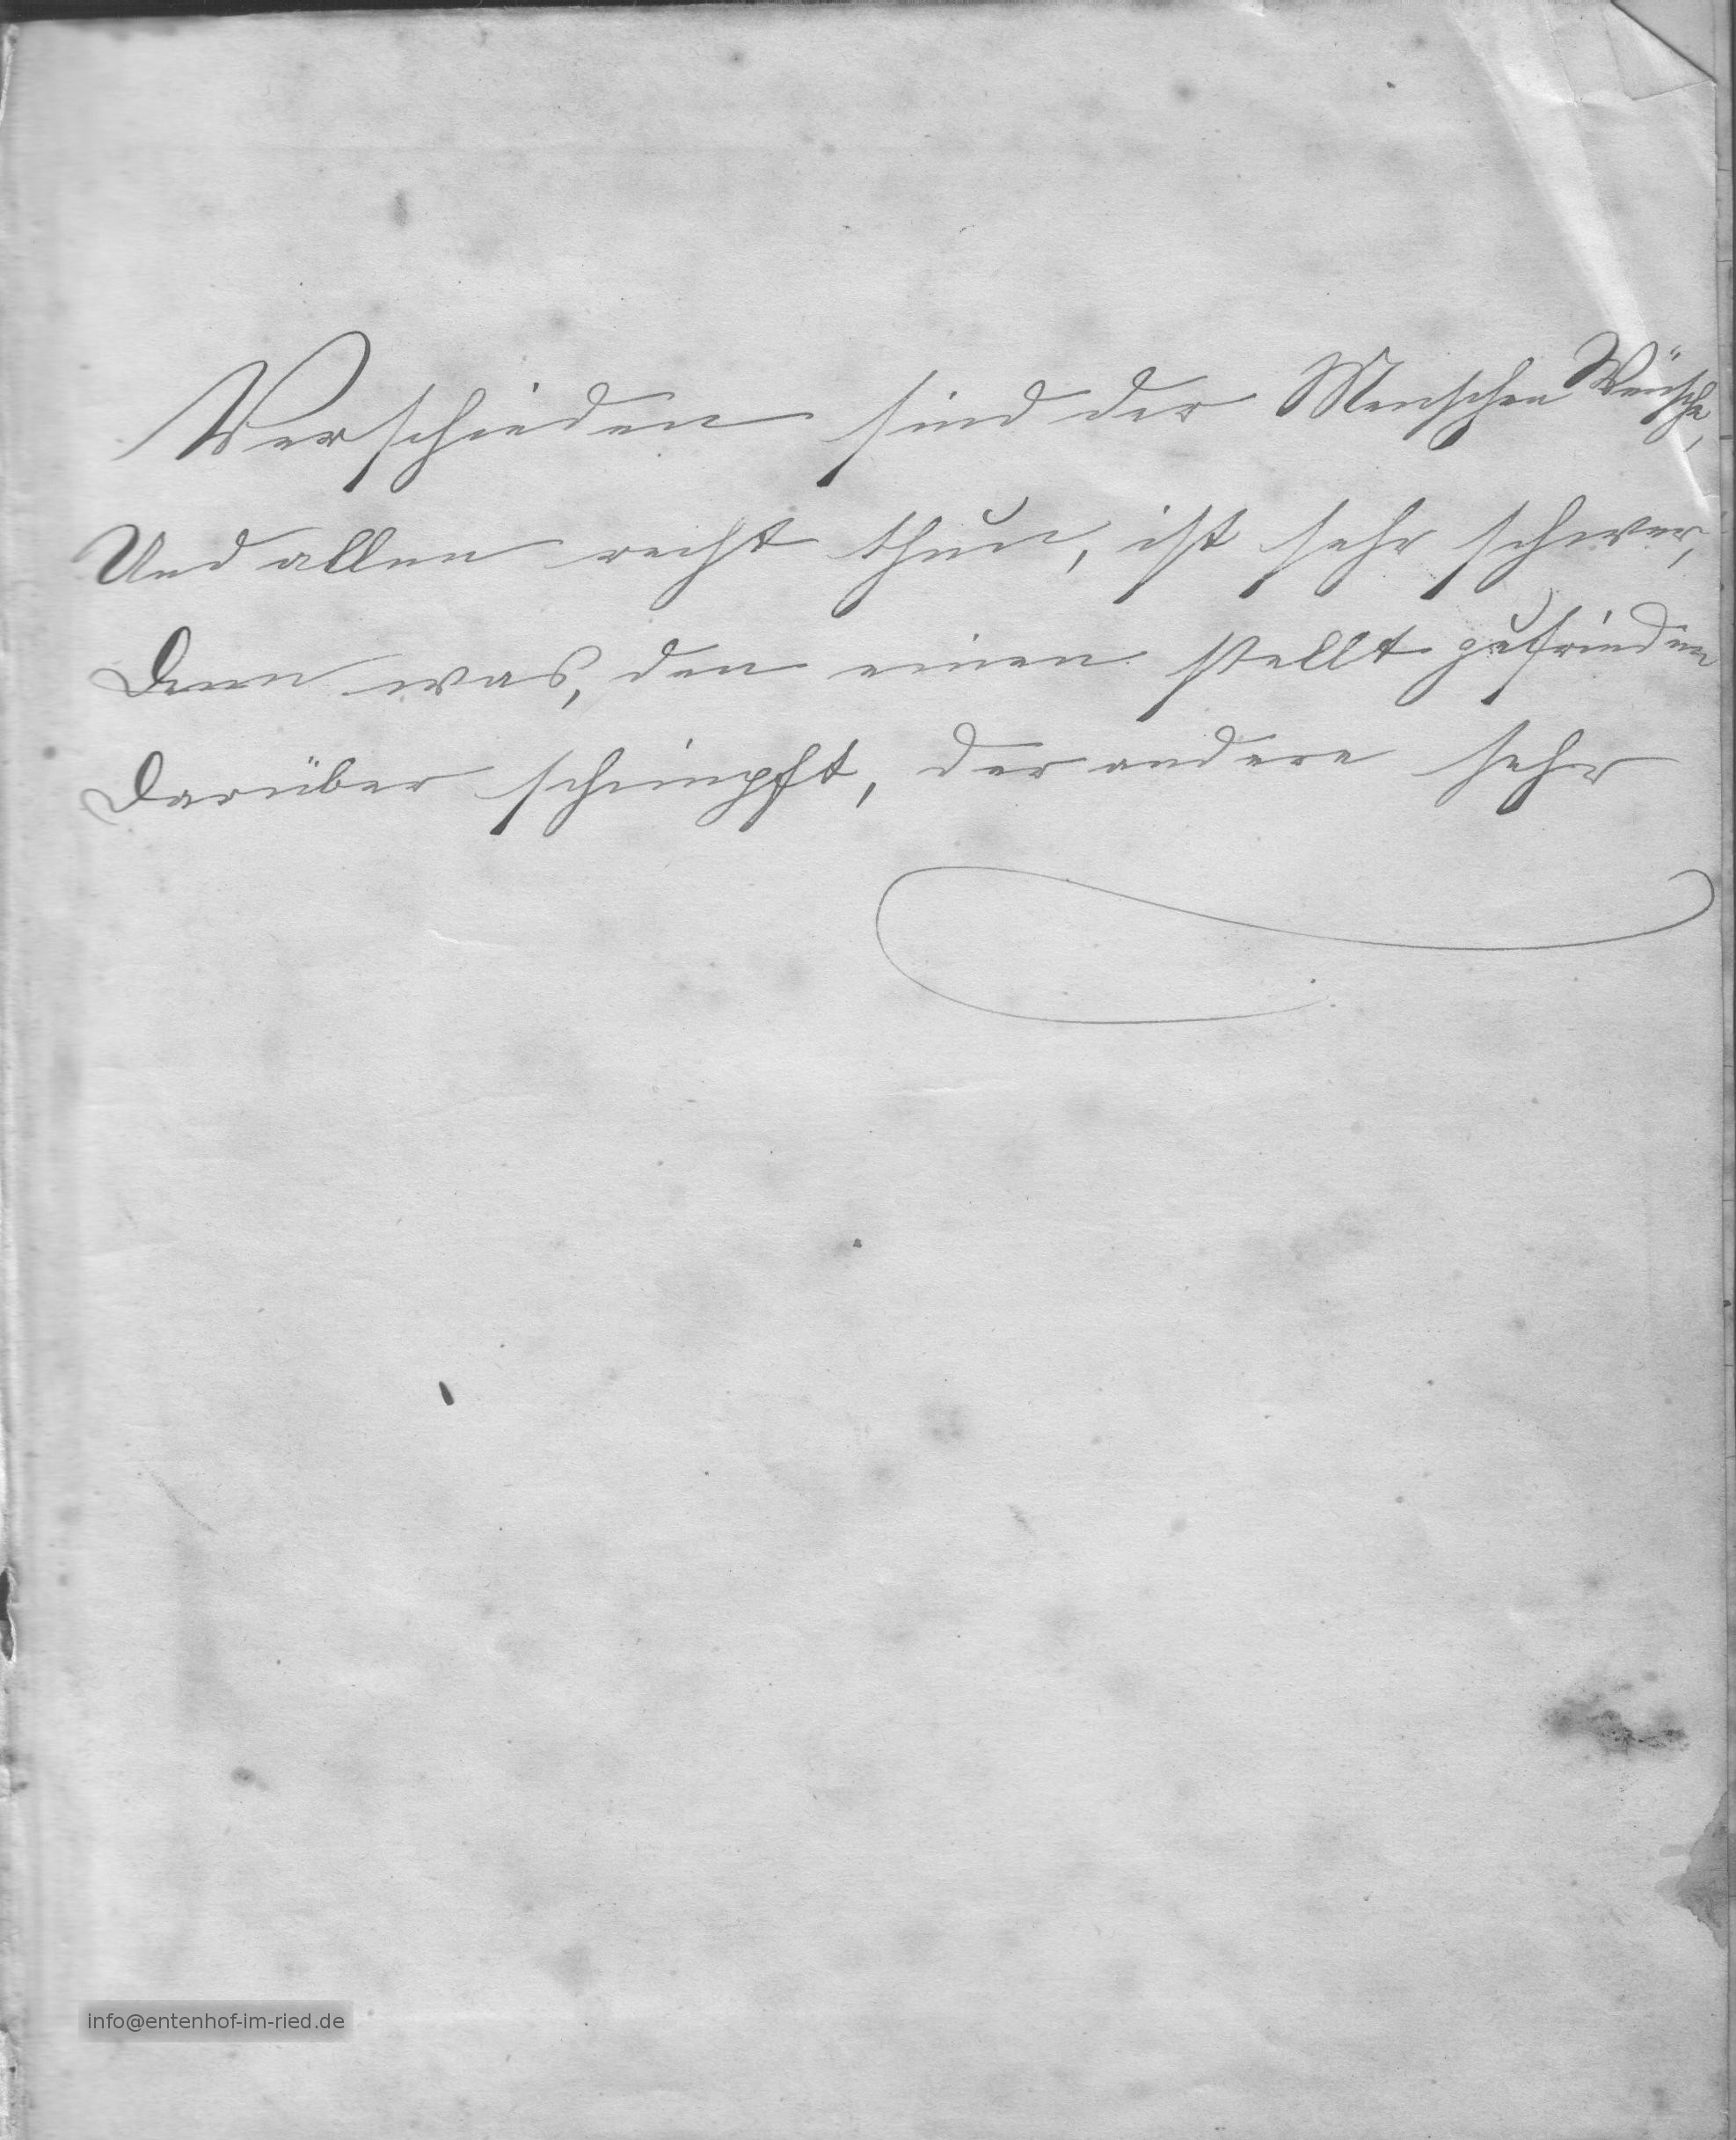 Verschieden sind der Menschen Wünsche,
Und allen recht thun, ist sehr schwer,
Denn was, den einen stellt zufrieden
Darüber schimpft, der andere sehr
info@entenhof-im-ried.de